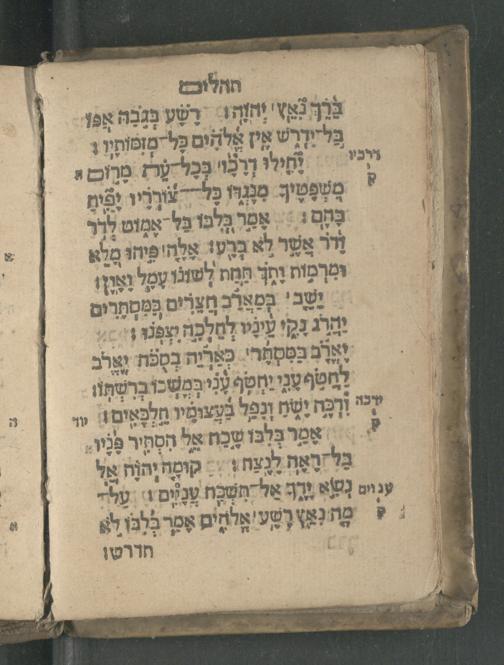 תהלים
בֵּרֵךְ נִאֵץ יְהוָה׃ רָשָׁע כְּגֹבַהּ אַפּוֹ
בַּל־יִדְרֹשׁ אֵין אֱלֹהִים כָּל־מְזִמּוֹתָיו׃
יָחִילוּ דְרָכָו בְּכָל־עֵת מָרוֹם
דרכיו
ק
מִשְׁפָּטֶיךָ מִנֶּגְדּוֹ כָּל־צוֹרְרָיו יָפִיחַ
בָּהֶם׃ אָמַר בְּלִבּוֹ בַּל־אֶמּוֹט לְדֹר
וָדֹר אֲשֶׁר לֹא בְרָע׃ אָלָה פִּיהוּ מָלֵא
וּמִרְמוֹת וָתֹךְ תַּחַת לְשׁוֹנוֹ עָמָל וָאָוֶן׃
יֵשֵׁב בְּמַאְרַב חֲצֵרִים בַּמִּסְתָּרִים
יַהֲרֹג נָקִי עֵינָיו לְחֵלְכָה יִצְפֹּנוּ׃
יֶאֱרֹב בַּמִּסְתָּר כְּאַרְיֵה בְסֻכֹּה יֶאֱרֹב
לַחֲטוֹף עָנִי יַחְטֹף עָנִי בְּמָשְׁכוֹ בְרִשְׁתּוֹ׃
וְדָכָה יָשֹׁחַ וְנָפַל בַּעֲצוּמָיו חֵלְכָּאִים׃
ידכה
ק
אָמַר בְּלִבּוֹ שָׁכַח אֵל הִסְתִּיר פָּנָיו
בַּל־רָאָה לָנֶצַח׃ קוּמָה יְהוָה אֵל
נְשָׂא יָדֶךָ אַל־תִּשְׁכַּח עֲנָיִים׃ עַל־
ענוים
ק
מֶה נִאֵץ רָשָׁע אֱלֹהִים אָמַר בְּלִבּוֹ לֹא
תדרש׃